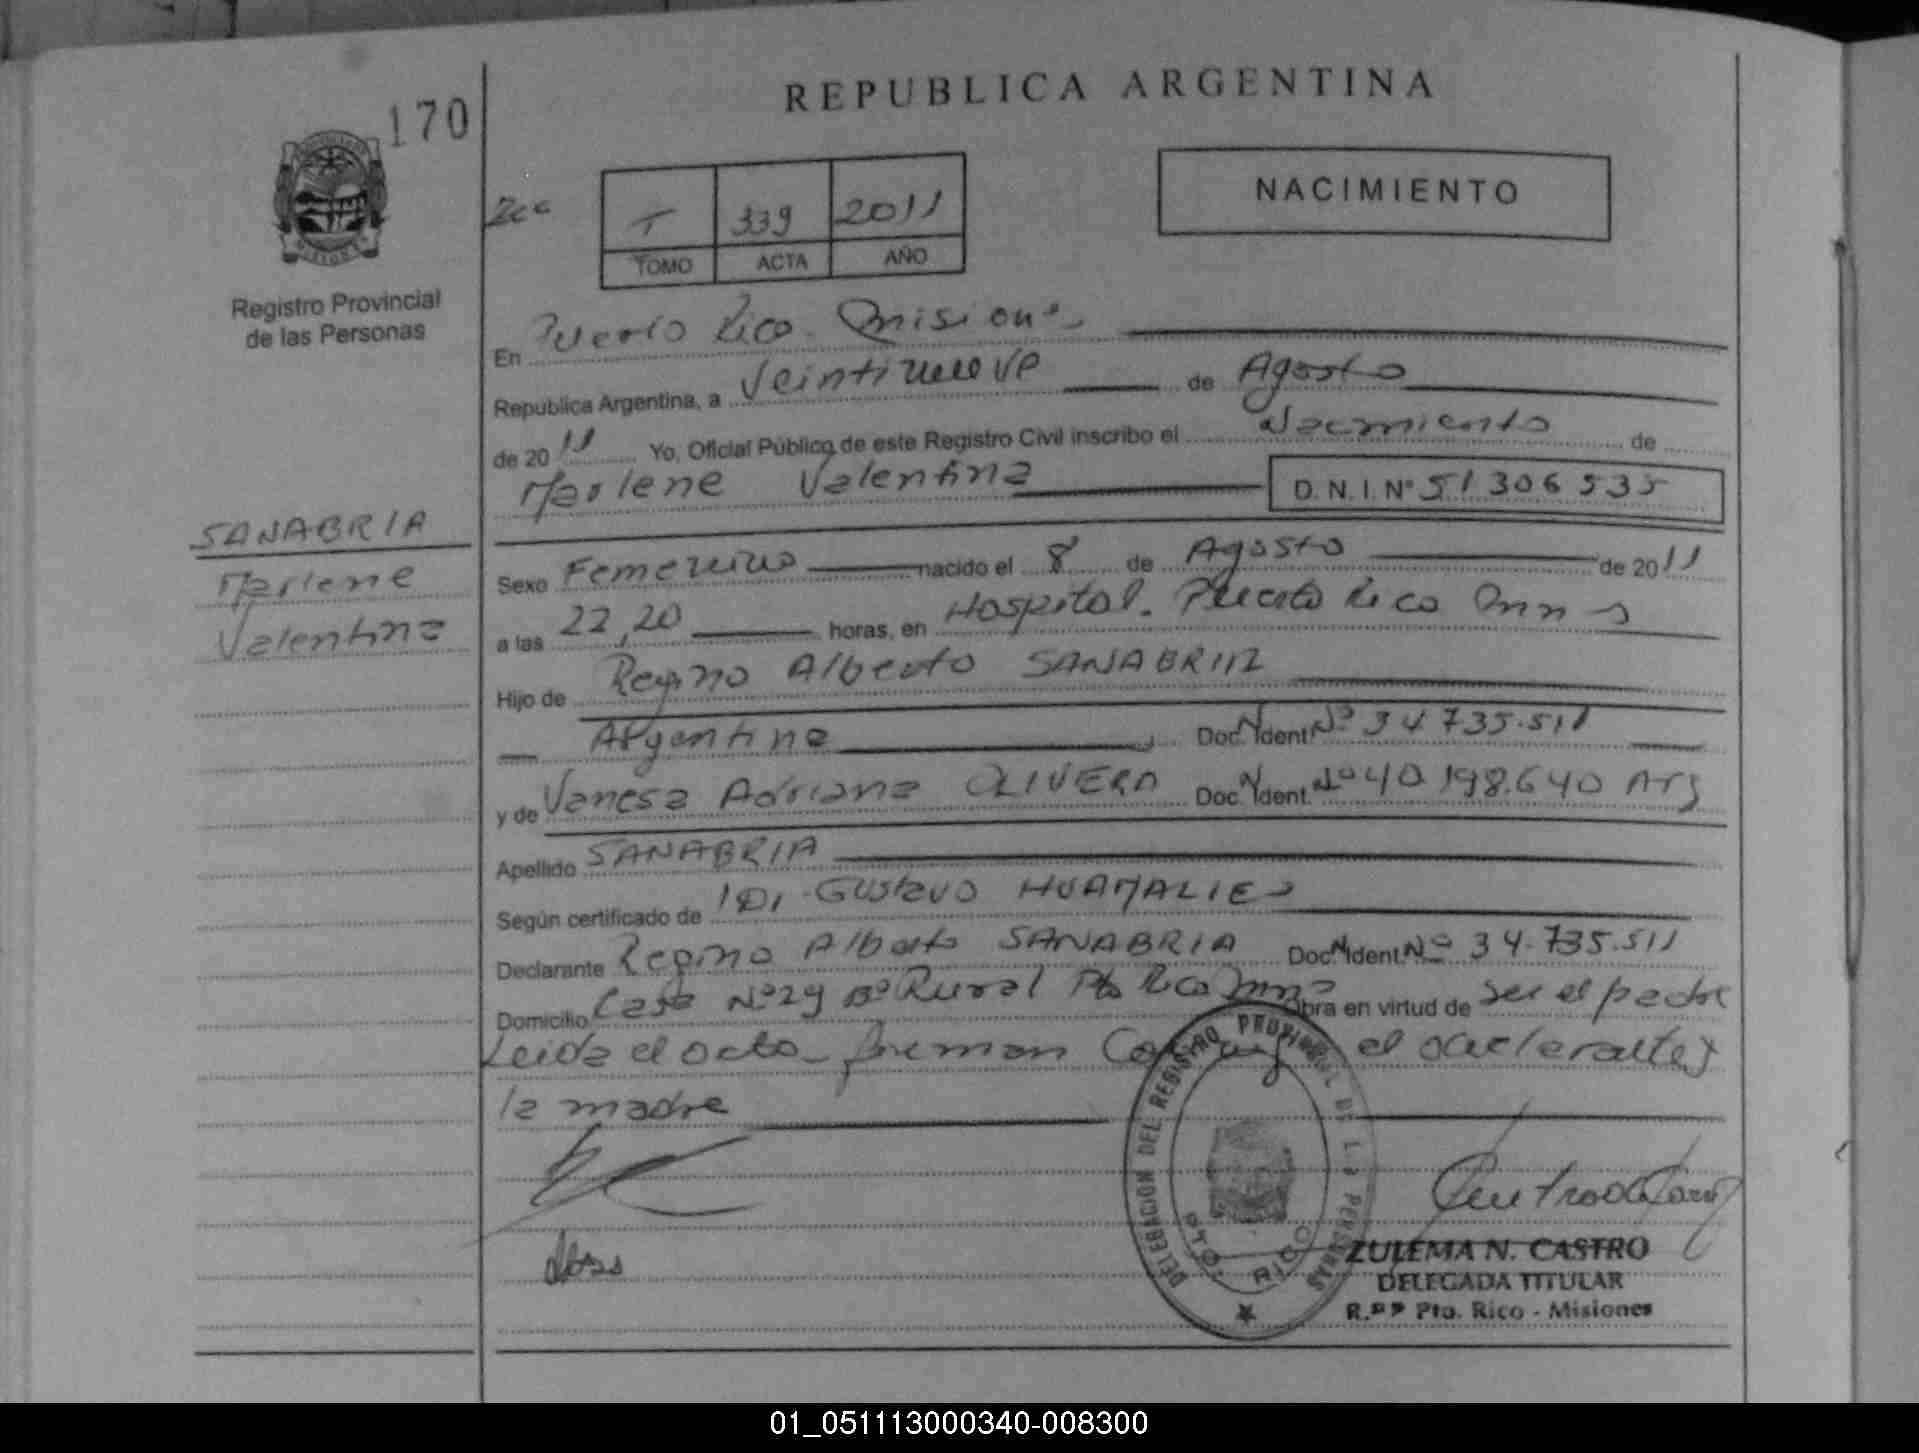 170
REPUBLICA ARGENTINA
NACIMIENTO
T 339 2011
TOMO ACTA AÑO
Registro Provincial
de las Personas
En Puerto Rico Misiones
Republica Argentina, a Veintinueve de Agosto
de 2011 Yo, Oficial Público de este Registro Civil inscribo el Nacimiento de
Marlene Valentina D.N.I. Nº 51306535
SANABRIA
Marlene
Valentina
Sexo Femenino nacido el 8 de Agosto de 2011
a las 22,20 horas, en Hospital. Puerto Rico Mnes
Hijo de Regino Alberto SANABRIA
Argentina Doc. Ident. Nº 34735.511
y de Vanesa Adriana OLIVERA Doc. Ident. Nº 40.198.640 Arg
Apellido SANABRIA
Según certificado de Gustavo
Declarante Regino Alberto SANABRIA Doc. Ident. Nº 34.735.511
Domicilio Casa Nº 29 Bº Rural Pto Rico Mnes Obra en virtud de ser el padre
Leida el acta firman Conmigo el declarante y
la madre
DELEGACION DEL REGISTRO PROVINCIAL DE LAS PERSONAS
PTO. RICO
ZULEMA N. CASTRO
DELEGADA TITULAR
R.PP Pto. Rico - Misiones
01_051113000340-008300